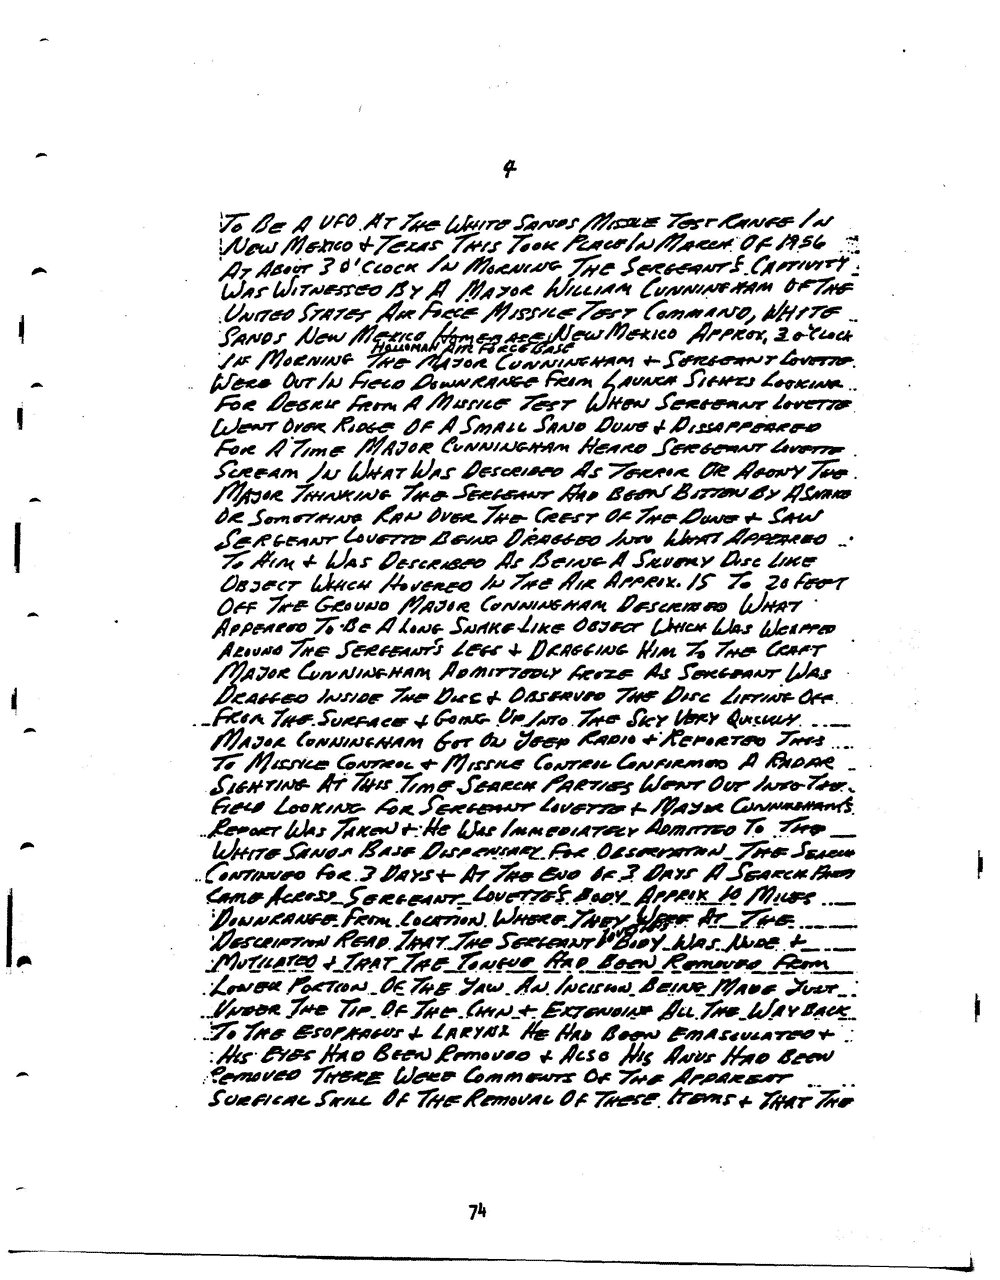 4
To Be A UFO At The White Sands Missile Test Range In
New Mexico + Texas This Took Place In March Of 1956
At About 3 O'Clock In Morning The Sergeant's Captivity
Was Witnessed By A Major William Cunningham Of The
United States Air Force Missile Test Command, White
Sands New Mexico New Mexico Approx, 3 o'clock
Holloman Air Force Base
In Morning The Major Cunningham + Sergeant Lovette
Were Out In Field Downrange From Launch Sights Looking
For Debris From A Missile Test When Sergeant Lovette
Went Over Ridge Of A Small Sand Dune + Dissappeared
For A Time Major Cunningham Heard Sergeant Lovette
Scream In What Was Described As Terror Or Agony The
Major Thinking The Sergeant Had Been Bitten By A Snake
Or Something Ran Over The Crest Of The Dune + Saw
Sergeant Lovette Being Dragged Into What Appeared
To Him + Was Described As Being A Silvery Disc Like
Object Which Hovered In The Air Approx. 15 To 20 Feet
Off The Ground Major Cunningham Described What
Appeared To Be A Long Snake-Like Object Which Was Wrapped
Around The Sergeant's Legs + Dragging Him To The Craft
Major Cunningham Admittedly Froze As Sergeant Was
Dragged Inside The Disc + Observed The Disc Lifting Off
From The Surface + Going Up Into The Sky Very Quickly
Major Cunningham Got On Jeep Radio + Reported This
To Missile Control + Missile Control Confirmed A Radar
Sighting At This Time Search Parties Went Out Into The
Field Looking For Sergeant Lovette + Major Cunningham's
Report Was Taken + He Was Immediately Admitted To The
White Sands Base Dispensary For Observation The Search
Continued For 3 Days + At The End Of 3 Days A Search Party
Came Across Sergeant Lovette's Body Approx 10 Miles
Downrange From Location Where They Were At The
Description Read That The Sergeant Body Was Nude +
Mutilated + That The Tongue Had Been Removed From
Lower Portion Of The Jaw An Incision Being Made Just
Under The Tip Of The Chin + Extending All The Way Back
To The Esophagus + Larynx He Had Been Emasculated +
His Eyes Had Been Removed + Also His Anus Had Been
Removed There Were Comments Of The Apparent
Surgical Skill Of The Removal Of These Items + That The
74